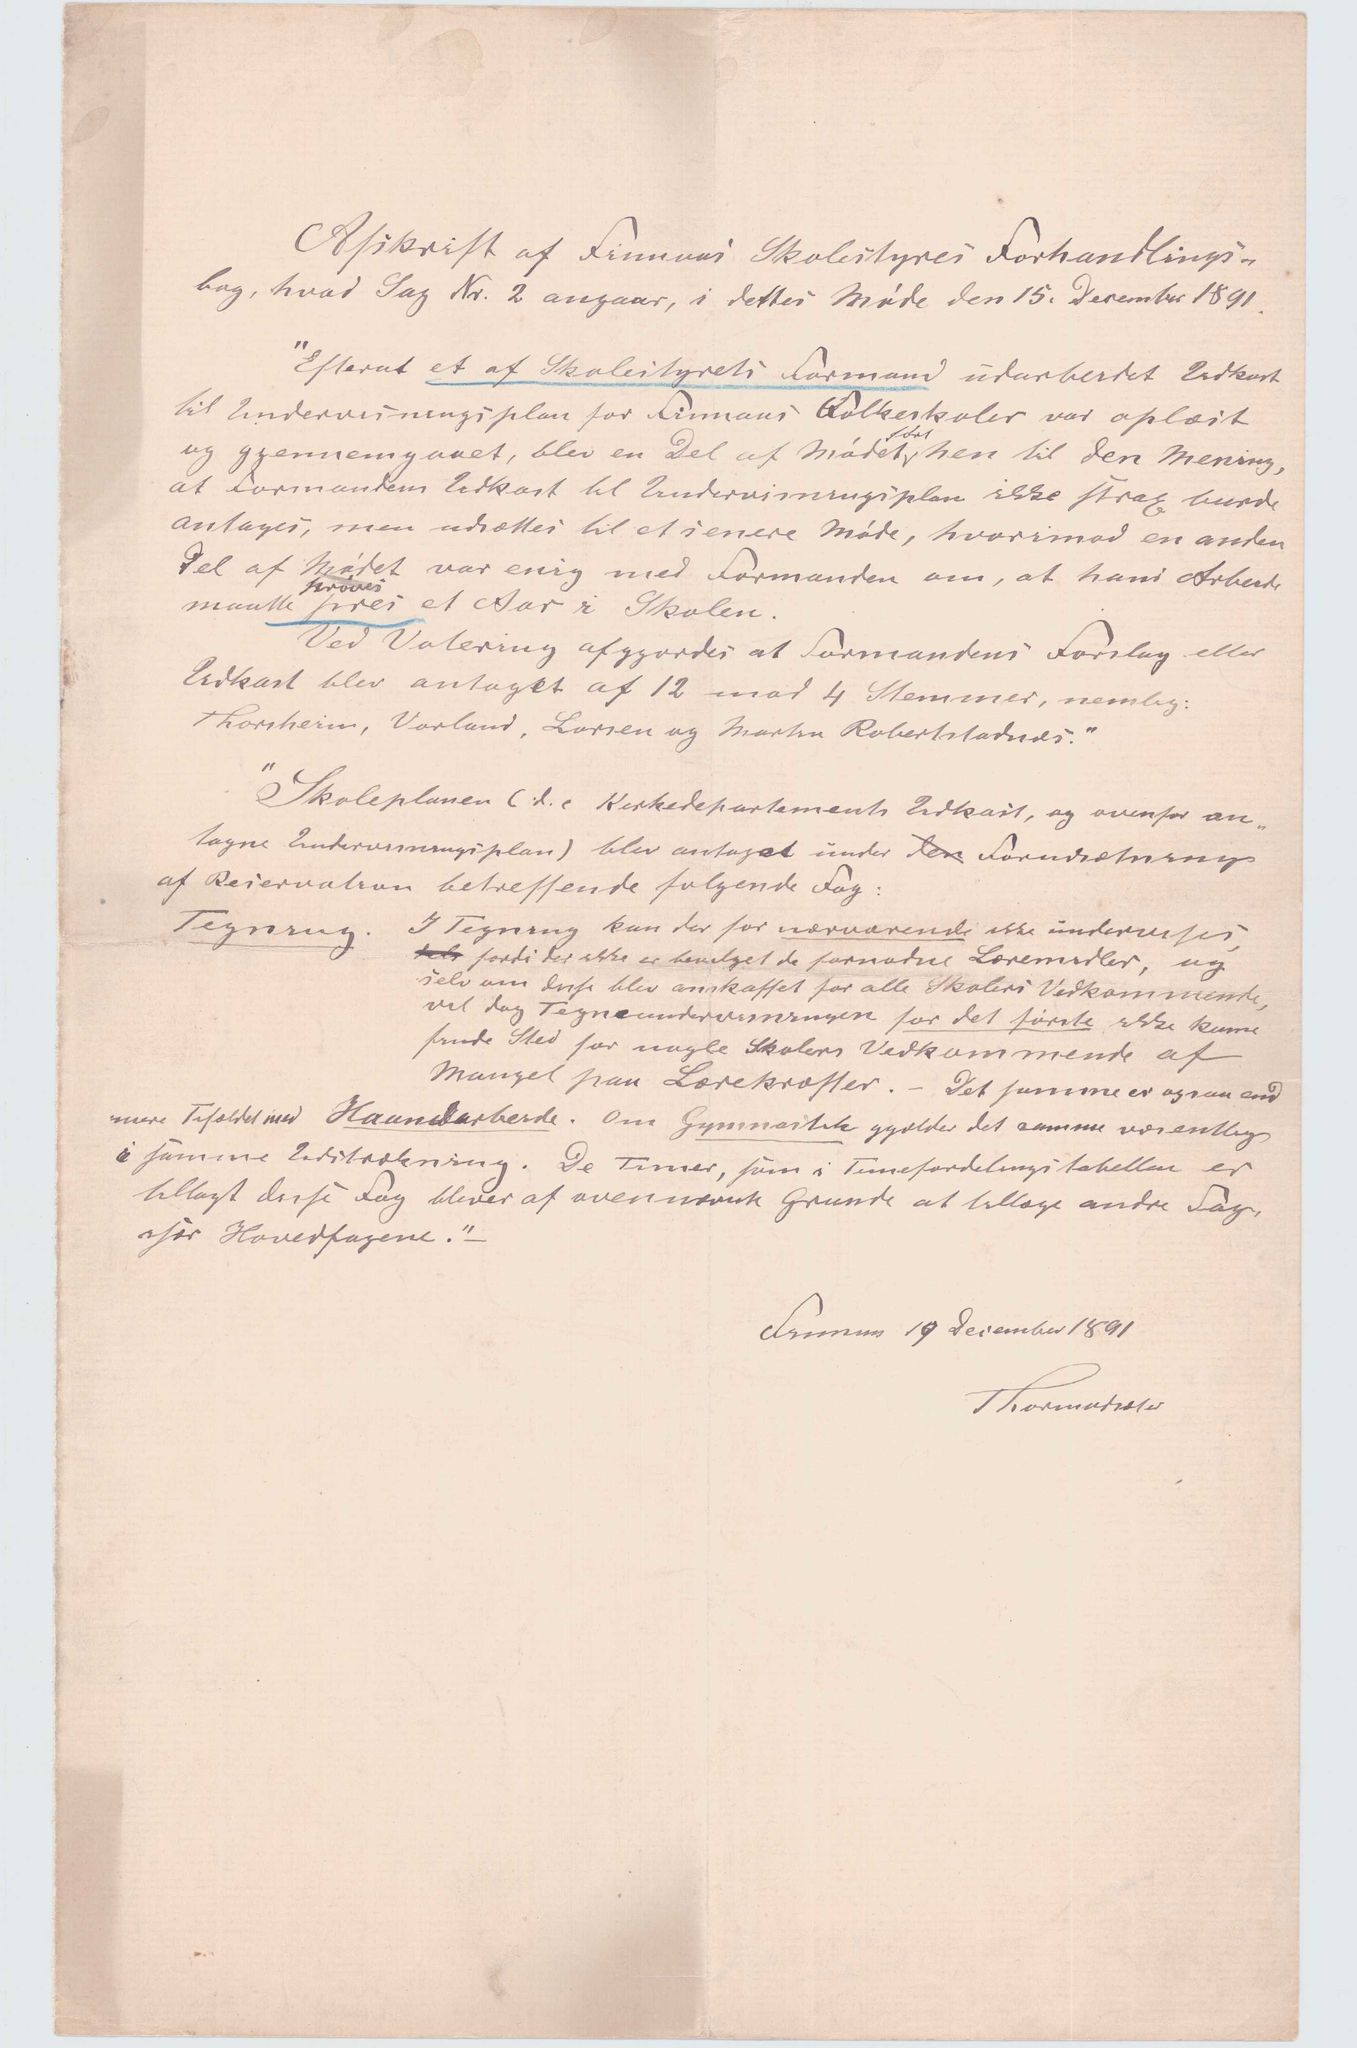 Afskrift af Finnaas Skolestyres Forhandlings-
bog, hvad Sag Nr. 2 angaar, i dettes Møde den 15. December 1891.
"Efterat et af Skolestyrets Formand udarbeidet Udkast
til Undervisningsplan for Finnaas Folkeskoler var oplæst
og gjennemgaaet, blev en Del af Mødet ført hen til den Mening,
at Formandens Udkast til Undervisningsplan ikke strax burde
antages, men udsættes til et senere Møde, hvorimod en anden
Del af Mødet var enig med Formanden om, at hans Arbeide
maatte prøves et Aar i Skolen.
Ved Votering afgjordes at Formandens Forslag eller
Udkast blev antaget af 12 mod 4 Stemmer, nemlig:
Thorsheim, Vorland, Larsen og Martin Robertstadnæs."
"Skoleplanen (d. e Kirkedepartements Udkast, og ovenfor an-
tagne Undervisningsplan) blev antaget under den Forudsætning
af Reservation betreffende følgende Fag:
Tegning. I Tegning kan der for nærværende ikke undervises,
fordi der ikke er bevilget de fornødne Læremidler, og
selv om disse blev anskaffet for alle Skolers Vedkommende,
vil dog Tegneundervisningen for det første ikke kunne
finde Sted for nogle Skolers Vedkommende af
Mangel paa Lærekræfter. - Det samme er ogsaa end
mere Tilfældet med Haandarbeide. Om Gymnastik gjælder det samme væsentlig
i samme Udstrækning. De Timer, som i Timefordelingstabellen er
tillagt disse Fag bliver af ovennævnte Grunde at tillægge andre Fag,
især Hovedfagene."-
Finnaas 19 December 1891
Thormodsæter